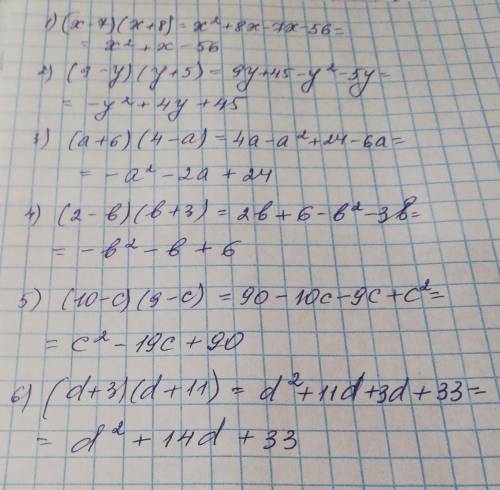 1) (x-7)(x+8) = x²+8x-7x-56=
= x²+x-56
2) (9-y)(y+5) = 9y+45-y²-5y=
= -y²+4y+45
3) (a+6)(4-a) = 4a-a²+24-6a=
= -a²-2a+24
4) (2-b)(b+3) = 2b+6-b²-3b=
= -b²-b+6
5) (10-c)(9-c) = 90-10c-9c+c²=
= c²-19c+90
6) (d+3)(d+11) = d²+11d+3d+33=
= d²+14d+33